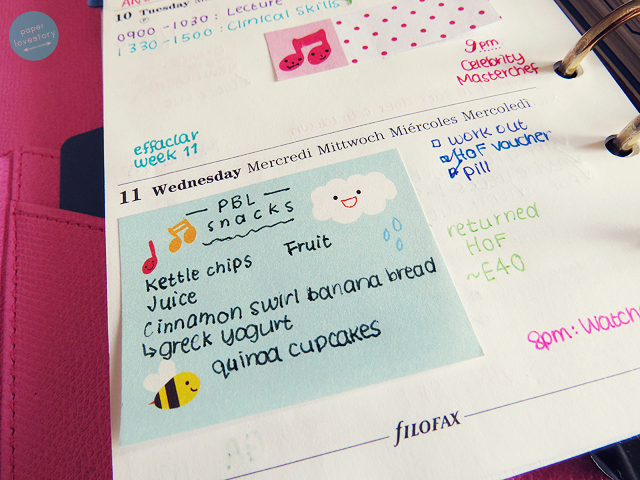 paper
lovestory
10 Tuesday
0900 -1030 : Lecture
1330 -1500 : Clinical Skills
9pm
Celebrity
Masterchef
effaclar
week 11
11 Wednesday Mercredi Mittwoch Miércoles Mercoledì
work out
HoF voucher
pill
PBL
snacks
Kettle chips
Fruit
Juice
Cinnamon swirl banana bread
↳ greck yogurt
quinoa cupcakes
returned
HoF
~£40
8pm: Watch
fILOFAX